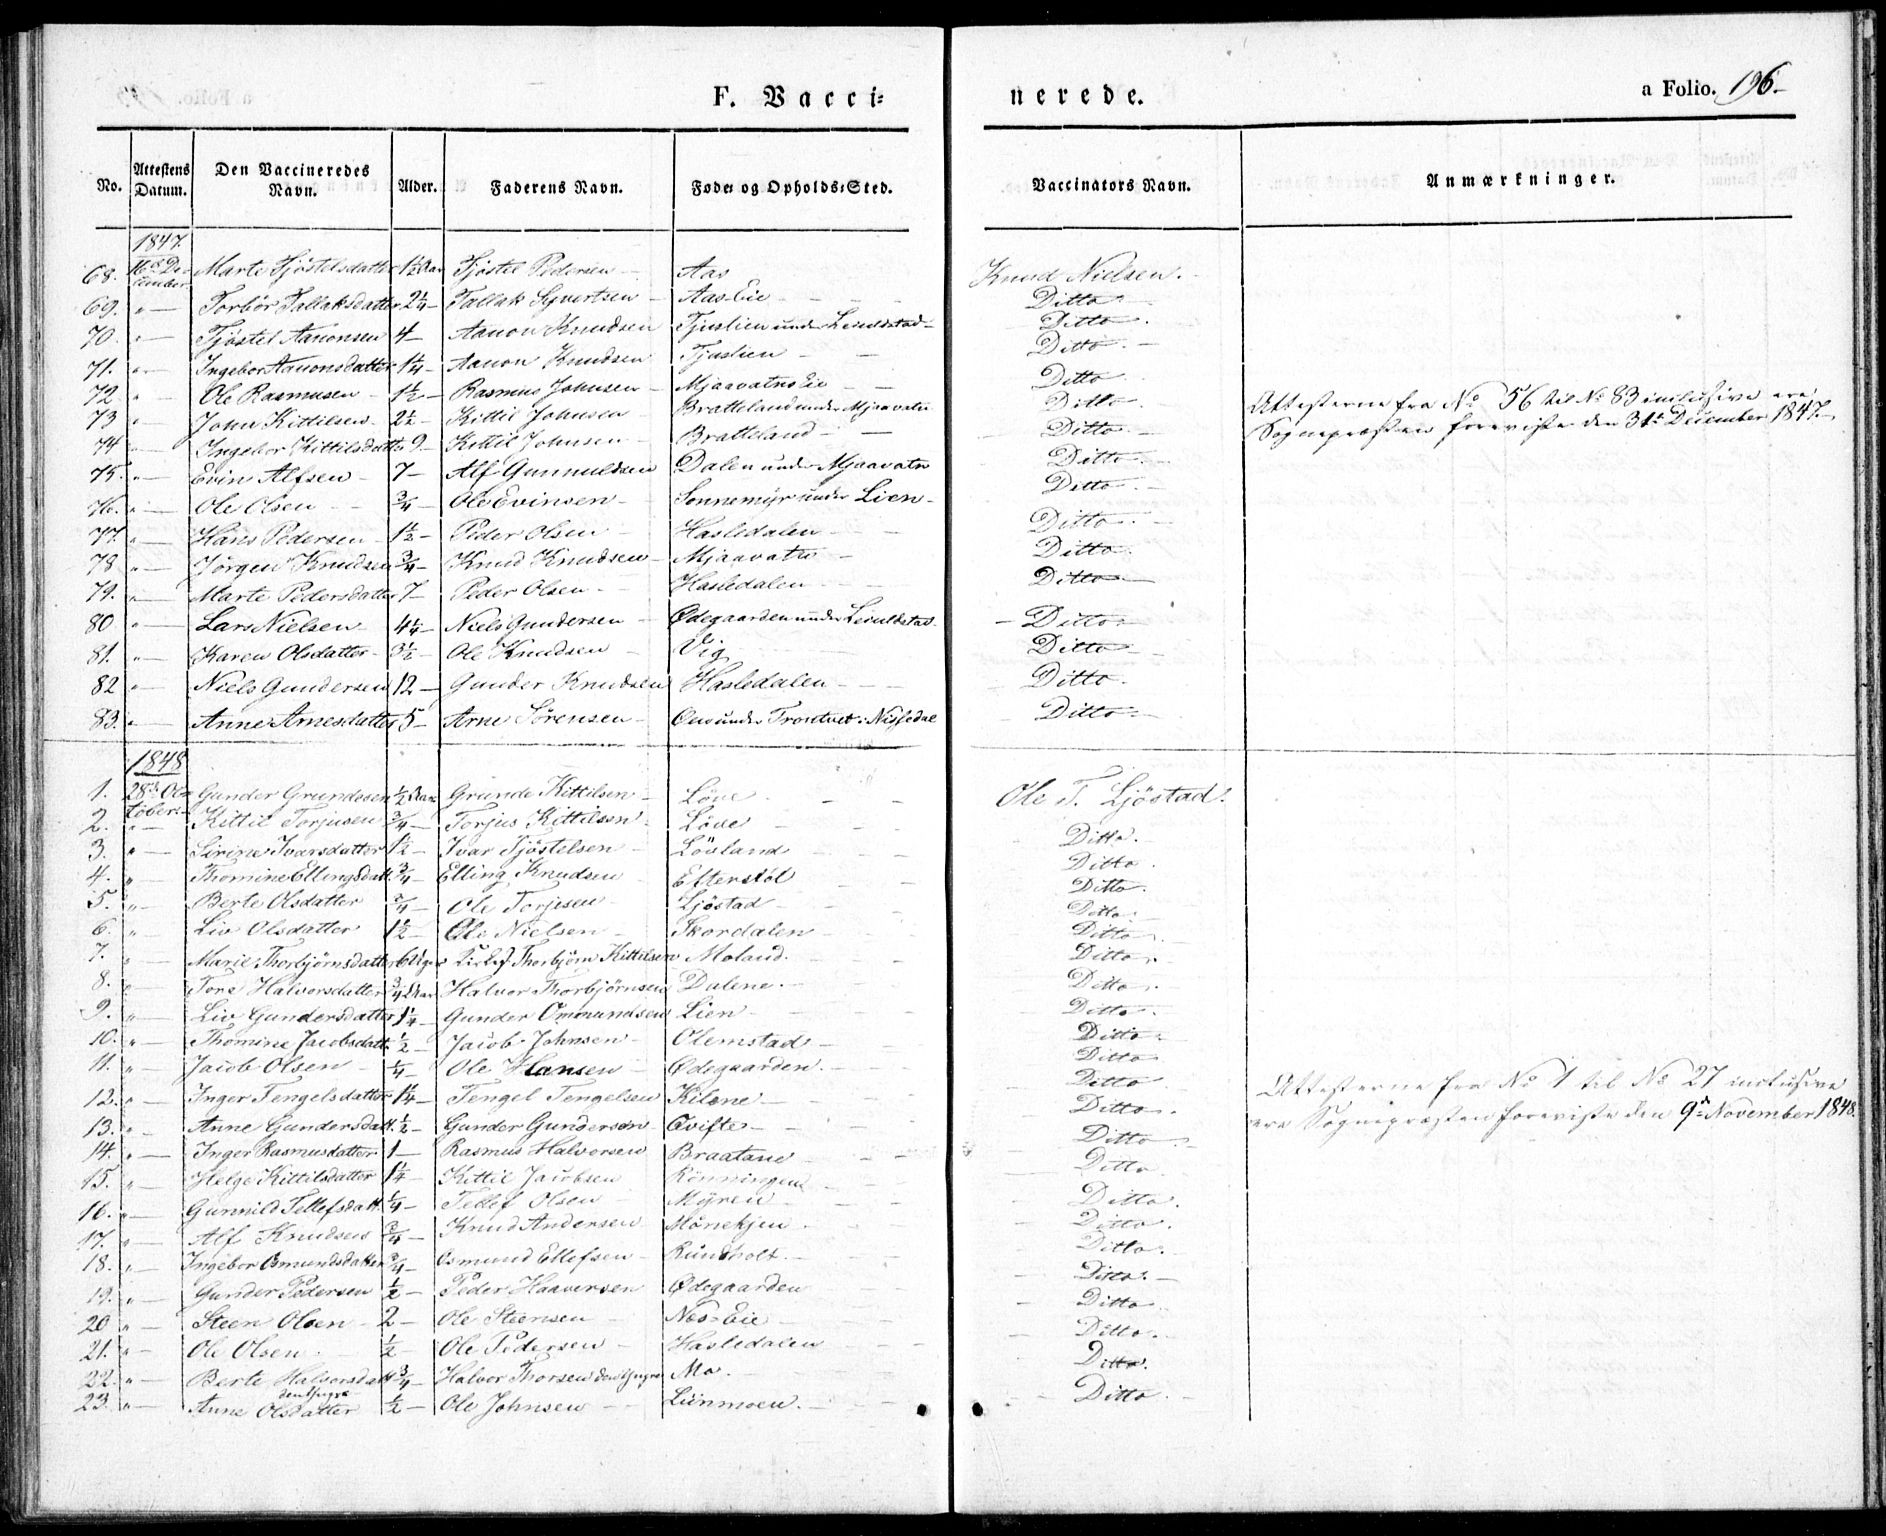 F. Vacci-nerede.
a Folio. 196.
No. Attestens Datum. Den Vaccineredes Navn. Alder. Faderens Navn. Føde- og Opholds-Sted. Vaccinators Navn. Anmærkninger.
1847
68. 16de December Marte Tjöstelsdatter 1½ Aar Tjöstel Pedersen Aas Knud Nielsen.
69. " Torbör Tallaksdatter 2¼ Tallak Syvertsen Aas-Eie Ditto
70. " Tjöstel Aanonsen 4 Aanon Knudsen Tjuslien under Ditto.
71. " Ingebor Aanonsdatter 1¼ Aanon Knudsen Tjuslien Ditto.
72 " Ole Rasmusen 1½ Rasmus Johnsen Mjaavatns Eie Ditto
73 " John Kittilsen 2½ Kittil Johnsen Bratteland under Mjaavatn Ditto.
74 " Ingebor Kittilsdatter 9 Kittil Johnsen Bratteland Ditto.
75. " Evin Alfsen 7 Alf Gunnuldsen Dalen under Mjaavatn Ditto.
76. " Ole Olsen ¾ Ole Evinsen Sonnemyr under Lien Ditto.
77. " Hans Pedersen 1½ Peder Olsen Hasledalen Ditto.
78 " Jörgen Knudsen ¾ Knud Knudsen Mjaavatn Ditto.
79. " Marte Pedersdatter 7 Peder Olsen Hasledalen Ditto
80 " Lars Nielsen 4¼ Niels Gundersen Ødegaarden under Ditto.
81. " Karen Olsdatter 3½ Ole Knudsen Vig Ditto
82 " Niels Gundersen 12 Gunder Knudsen Hasledalen Ditto.
83. " Anne Arnesdatter 5 Arne Sörensen under Nissedal Ditto.
Attesterne fra No 56 til No 83 inclusive ere
Sognepræsten foreviste den 31te December 1847.
1848
1. 28de October Gunder Grundesen ½ Aar Grunde Kittilsen Löve Ole T. Ljöstad.
2. " Kittil Torjusen ¾ Torjus Kittilsen Löve Ditto.
3. " Sirine Ivarsdatter 1½ Ivar Tjöstelsen Lövland Ditto.
4. " Thomine Ellingsdatt. ¾ Elling Knudsen Efterstöl Ditto.
5. " Berte Olsdatter ¾ Ole Torjesen Ljöstad Ditto.
6. " Liv Olsdatter 1½ Ole Nielsen Skordalen Ditto.
7. " Marie Thorbjörnsdatter 6 Uger Thorbjörn Kittilsen Moland. Ditto.
8. " Tore Halvorsdatter ¾ Aar Halvor Thorbjörnsen Dalene. Ditto.
9. " Liv Gundersdatter 1¼ Gunder Ommundsen Lien Ditto.
10. " Thomine Jacobsdatt. ½ Jacob Johnsen Olemstad Ditto.
11. " Jacob Olsen ¼ Ole Hansen Ødegaarden. Ditto
12. " Inger Tengelsdatter 1¼ Tengel Tengelsen Kilene Ditto
13. " Anne Gundersdatt. ½ Gunder Gundersen Øvifte Ditto.
14. " Inger Rasmusdatter 1 Rasmus Halvorsen Braatane Ditto.
15. " Helge Kittilsdatter 1¼ Kittil Jacobsen Rönningen Ditto.
16. " Gunnild Tellefsdatt. ¼ Tellef Olsen Myren Ditto.
17. " Alf Knudsen ¾ Knud Andersen Mönekjen Ditto.
18. " Ingebor Osmundsdatter ¾ Osmund Ellefsen Rundholt Ditto.
19. " Gunder Pedersen ½ Peder Haaversen Ødegaarden Ditto.
20 " Steen Olsen 2 Ole Steensen Nes-Eie Ditto.
21. " Ole Olsen ½ Ole Pedersen Hasledalen Ditto.
22. " Berte Halvorsdatt ¾ Halvor Thorsen den Yngre Mo. Ditto.
den Yngre
23. " Anne Olsdatter ½ Ole Johnsen Liinmoen. Ditto.
Attesterne fra No 1 til No 27 inclusive
ere Sognepræsten foreviste den 9de November 1848.